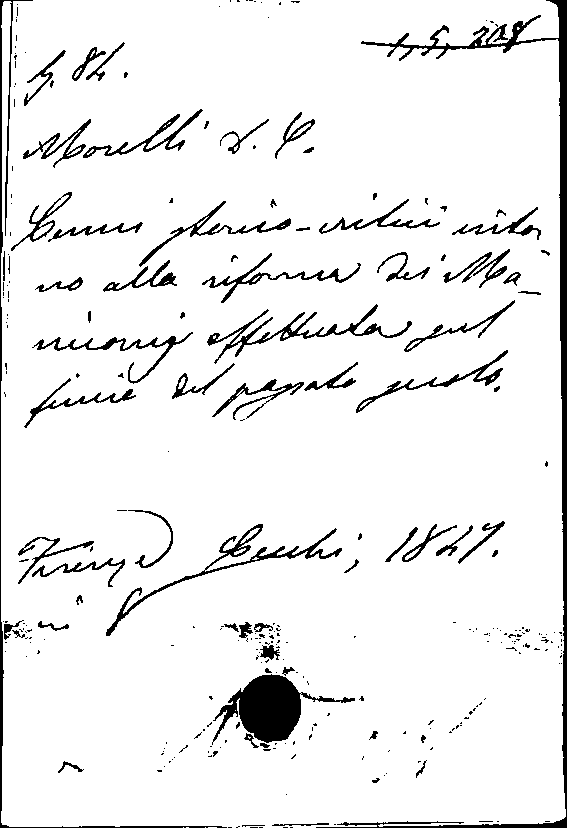 1, 5, 208
G. 84.
Morelli D. C.
Cenni storico-critici intor
no alla riforma dei Ma-
nicomij effettuata sul
finire del passato secolo.
Firenze Cecchi, 1847.
in 8